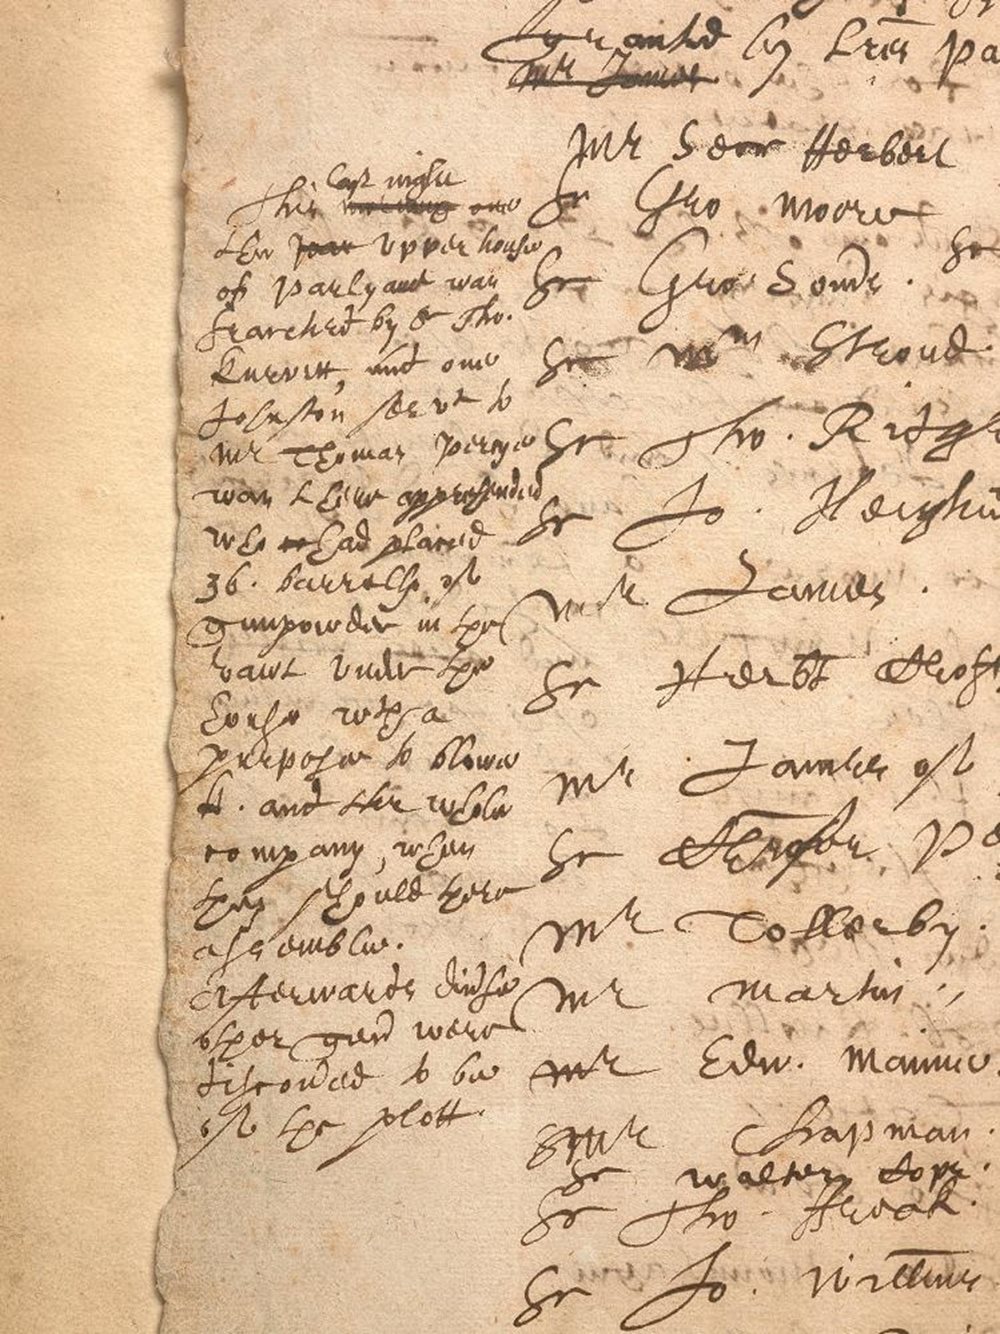 granted by Lres Pa
Mr James
Mr Serr Herbert
Sr Geo Moore
Sr
Sr Geo Somrs.
Sr Wm Stroud.
Sr Tho. Ridg
Sr Jo. Heigha
Mr James.
Sr Herbt Croft
Mr James of
Sr Chrofer P
Mr Tollerby.
Mr Martin.
Mr Edw. Mannie
Mr Chapman.
Sr Walter Cope.
Sr Tho. Freak.
Sr Jo.
last night
This morning one
the upper house
of Parlyamt was
searched by Sr Tho.
Knevett, and one
Johnson servt to
Mr Thomas Percye
was there apprehended
who had placed
36. barrells of
gunpowder in the
vawt under the
house wth a
purpose to blowe
it. and the whole
company, when
they should here
assemble.
Afterwards divse
other gent were
discoved to be
of the plott.